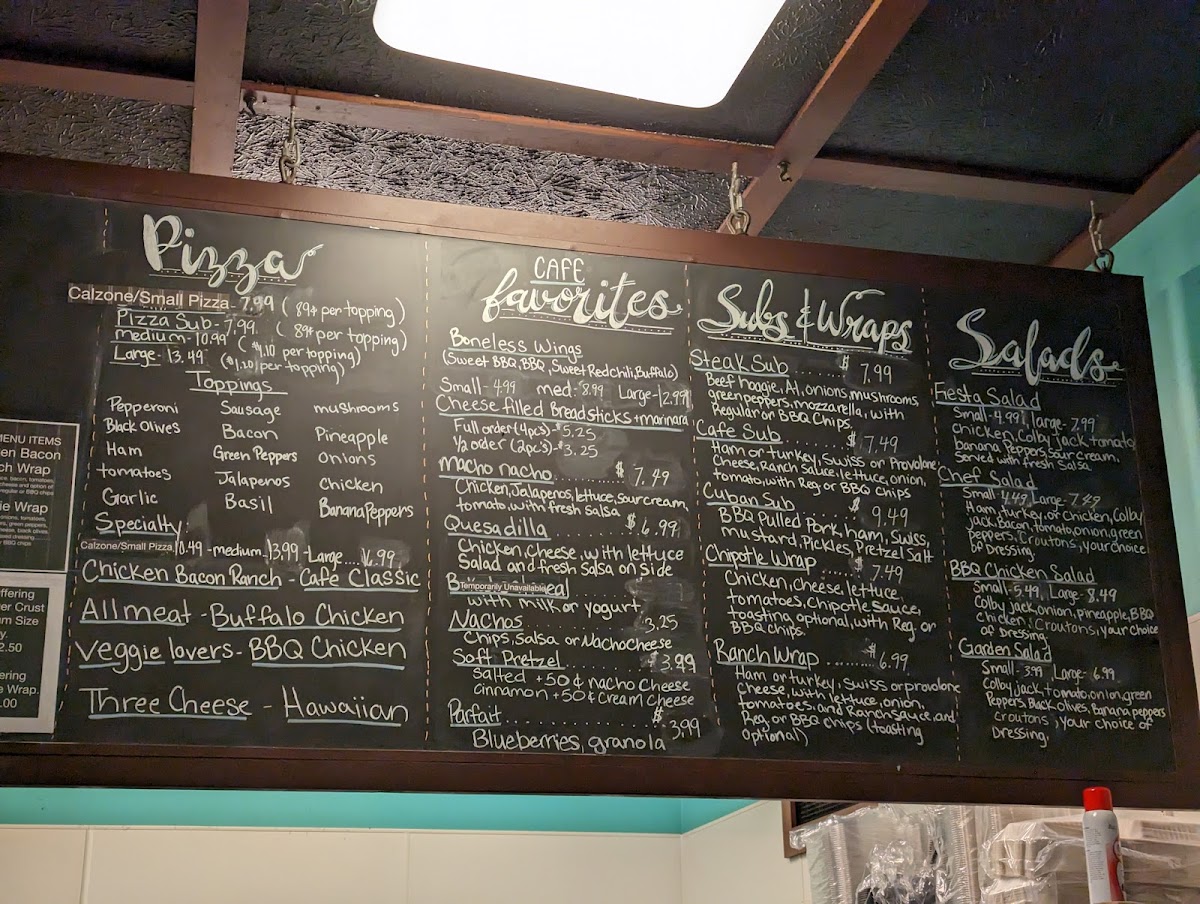 Pizza
Calzone/Small Pizza - 7.99 (89¢ per topping)
Pizza Sub - 7.99 (89¢ per topping)
medium - 10.99 ($1.10 per topping)
Large - 13.49 ($1.10/per topping)
Toppings
Pepperoni Sausage mushrooms
Black Olives Bacon Pineapple
Ham Green Peppers Onions
tomatoes Jalapenos Chicken
Garlic Basil Banana Peppers
Specialty:
Calzone/Small Pizza 10.49 - medium 13.99 - Large 16.99
Chicken Bacon Ranch - Cafe Classic
All meat - Buffalo Chicken
Veggie lovers - BBQ Chicken
Three Cheese - Hawaiian
CAFE
favorites
Boneless Wings
(Sweet BBQ, BBQ, Sweet Red Chili, Buffalo)
Small - 4.99 med - 8.99 Large - 12.99
Cheese filled Breadsticks + marinara
Full order (4pcs) - $5.25
1/2 order (2pc's) - $3.25
Macho nacho $7.49
Chicken, Jalapenos, lettuce, sour cream,
tomato, with fresh salsa
Quesadilla $6.99
Chicken, cheese, with lettuce
Salad and fresh salsa on side
Temporarily Unavailable
with milk or yogurt
Nachos 3.25
Chips, salsa or Nacho Cheese
Soft Pretzel $3.99
Salted +50¢ nacho Cheese
cinnamon +50¢ cream Cheese
Parfait $3.99
Blueberries, granola
Subs & Wraps
Steak Sub $7.99
Beef hoagie, A1, onions, mushrooms,
green peppers, mozzarella, with
Regular or BBQ Chips.
Cafe Sub $7.49
Ham or turkey, Swiss or Provolone
Cheese, Ranch Sauce, lettuce, onion,
tomato, with Reg or BBQ chips
Cuban Sub $9.49
BBQ Pulled Pork, ham, Swiss,
mustard, Pickles, Pretzel Salt
Chipotle Wrap $7.49
Chicken, cheese, lettuce,
tomatoes, Chipotle Sauce,
toasting optional, with Reg. or
BBQ chips.
Ranch Wrap $6.99
Ham or turkey, Swiss or provolone
cheese, with lettuce, onion,
tomatoes, and Ranch sauce, and
Reg. or BBQ chips (toasting
optional)
Salads
Fiesta Salad
Small - 4.99, large - 7.99
Chicken, Colby jack, tomato,
banana peppers, sour cream.
Served with fresh Salsa
Chef Salad
Small 4.49, Large - 7.49
Ham, turkey, or Chicken, Colby
jack, Bacon, tomato, onion, green
peppers, Croutons, your choice
of Dressing.
BBQ Chicken Salad
Small - 5.49, Large - 8.49
Colby jack, onion, pineapple, BBQ
Chicken, Croutons, your choice
of Dressing.
Garden Salad
Small - 3.99, Large - 6.99
Colby jack, tomato, onion, green
Peppers, Black olives, banana peppers
croutons, your choice of
Dressing.
MENU ITEMS
Bacon
Wrap
Wrap
Crust
Size
2.50
Wrap.
.00